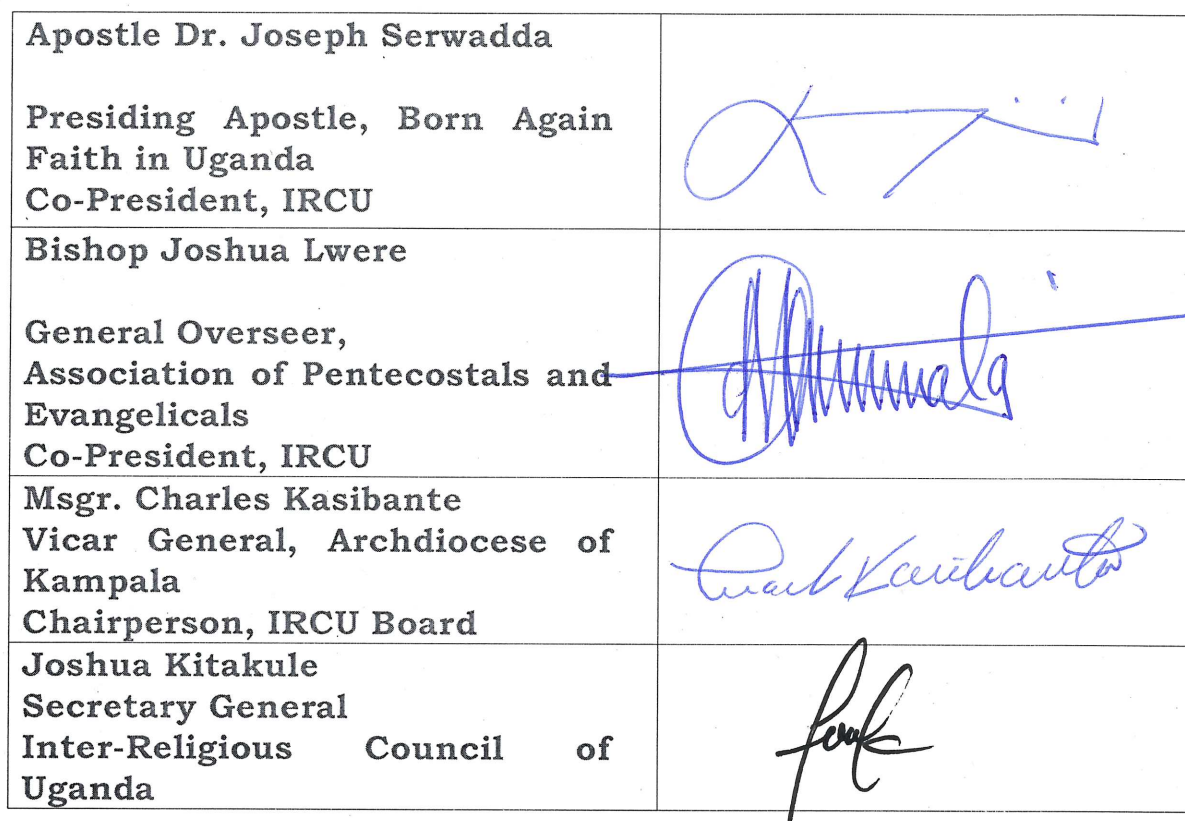 Apostle Dr. Joseph Serwadda
Presiding Apostle, Born Again
Faith in Uganda
Co-President, IRCU
Bishop Joshua Lwere
General Overseer,
Association of Pentecostals and
Evangelicals
Co-President, IRCU
Msgr. Charles Kasibante
Vicar General, Archdiocese of
Kampala
Chairperson, IRCU Board
Joshua Kitakule
Secretary General
Inter-Religious Council of
Uganda